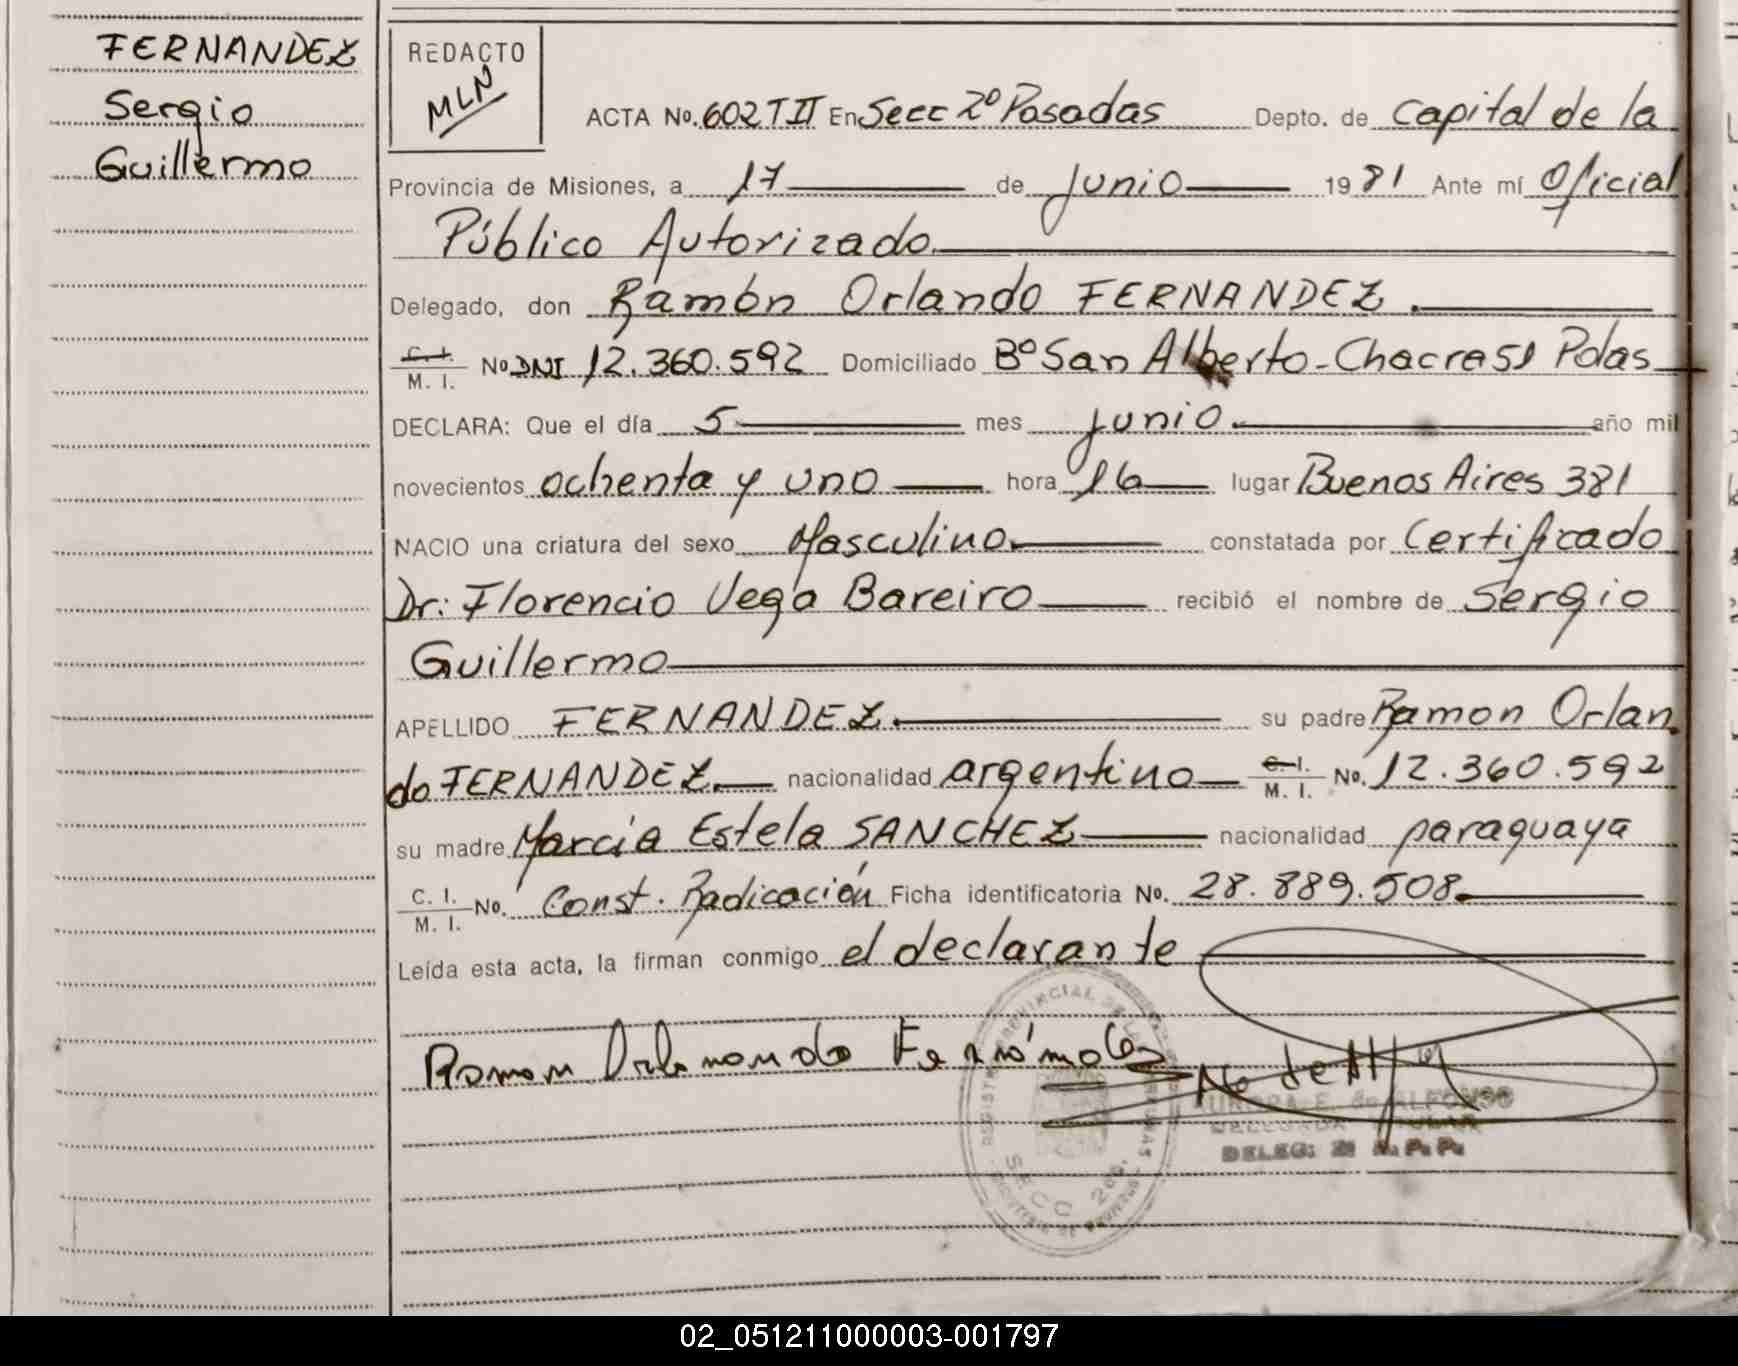 FERNANDEZ
Sergio
Guillermo
REDACTO
MLN
ACTA No. 602 TII En Secc 2º Posadas Depto. de Capital de la
Provincia de Misiones, a 17 de junio 1981 Ante mí Oficial
Público Autorizado
Delegado, don Ramón Orlando FERNANDEZ.
C. I. M. I. No DNI 12.360.592 Domiciliado Bº San Alberto - Chacra 51 Pdas
DECLARA: Que el día 5 mes junio año mil
novecientos ochenta y uno hora 16 lugar Buenos Aires 381
NACIO una criatura del sexo Masculino constatada por Certificado
Dr: Florencio Vega Bareiro recibió el nombre de Sergio
Guillermo
APELLIDO FERNANDEZ su padre Ramon Orlan
do FERNANDEZ nacionalidad argentino C. I. M. I. No. 12.360.592
su madre Marcia Estela SANCHEZ nacionalidad paraguaya
C. I. M. I. No. Const. Radicación Ficha identificatoria No. 28.889.508
Leída esta acta, la firman conmigo el declarante
DE ALFONSO
DELEG:
SECC 2da.
02_051211000003-001797